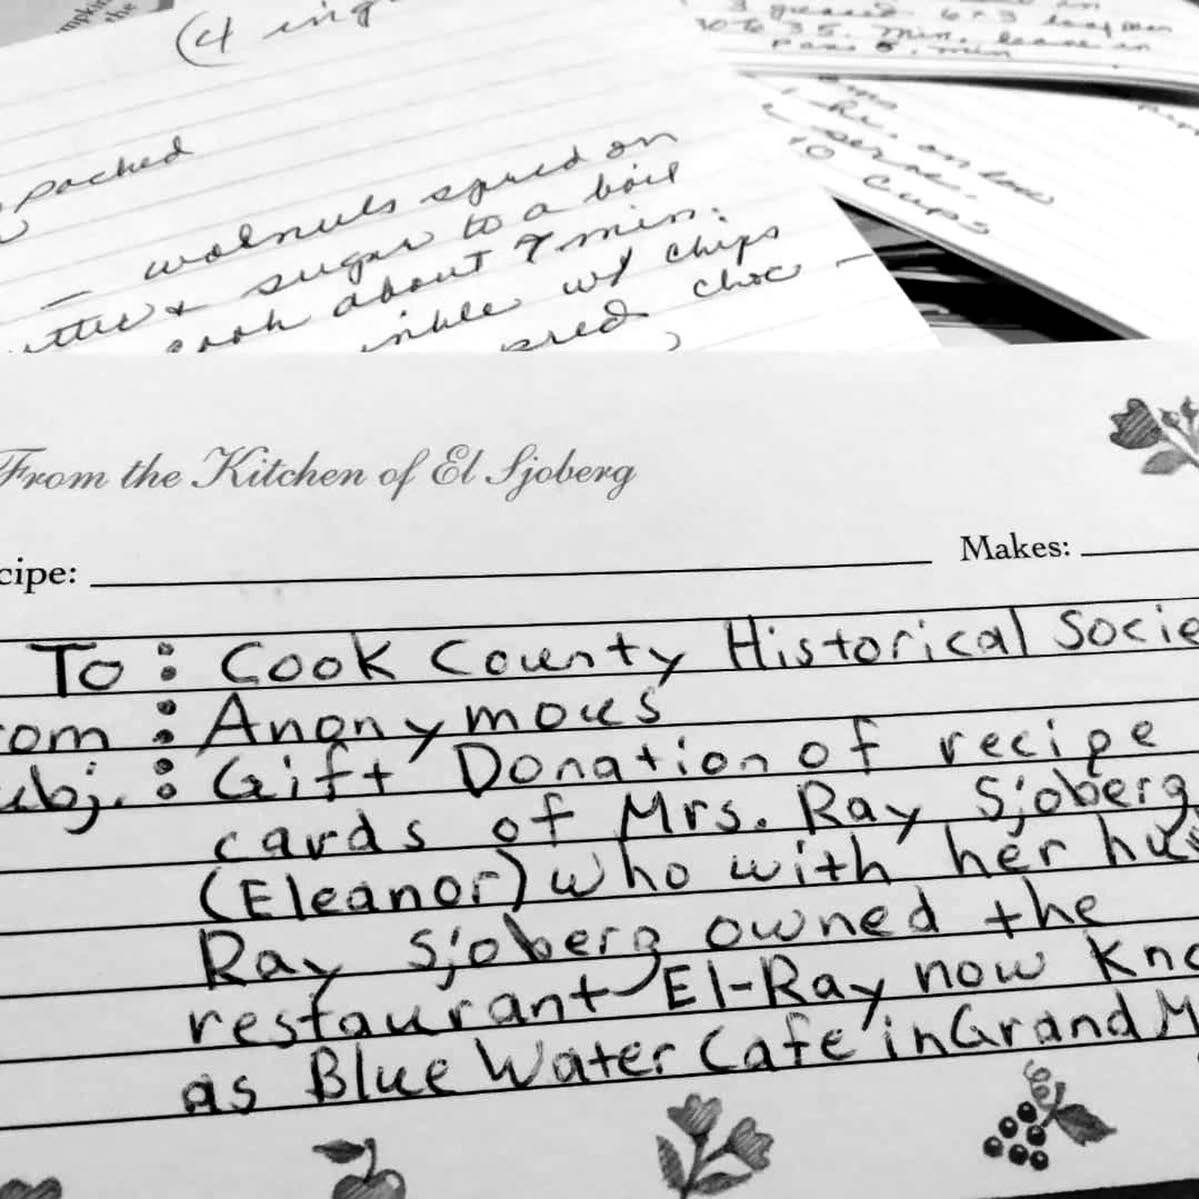 (4 ing
packed
— walnuts spred on
& sugar to a boil
about 7 min.
w/ chips
choc —
3 greased 6 x 3 loaf
30 to 35 min. leave in
pans 5 min
on low
10 cups
From the Kitchen of El Sjoberg
cipe: Makes:
To: Cook County Historical Socie
rom: Anonymous
ubj.: Gift Donation of recipe
cards of Mrs. Ray Sjoberg
(Eleanor) who with her hus
Ray Sjoberg owned the
restaurant El-Ray now kno
as Blue Water Cafe in Grand M